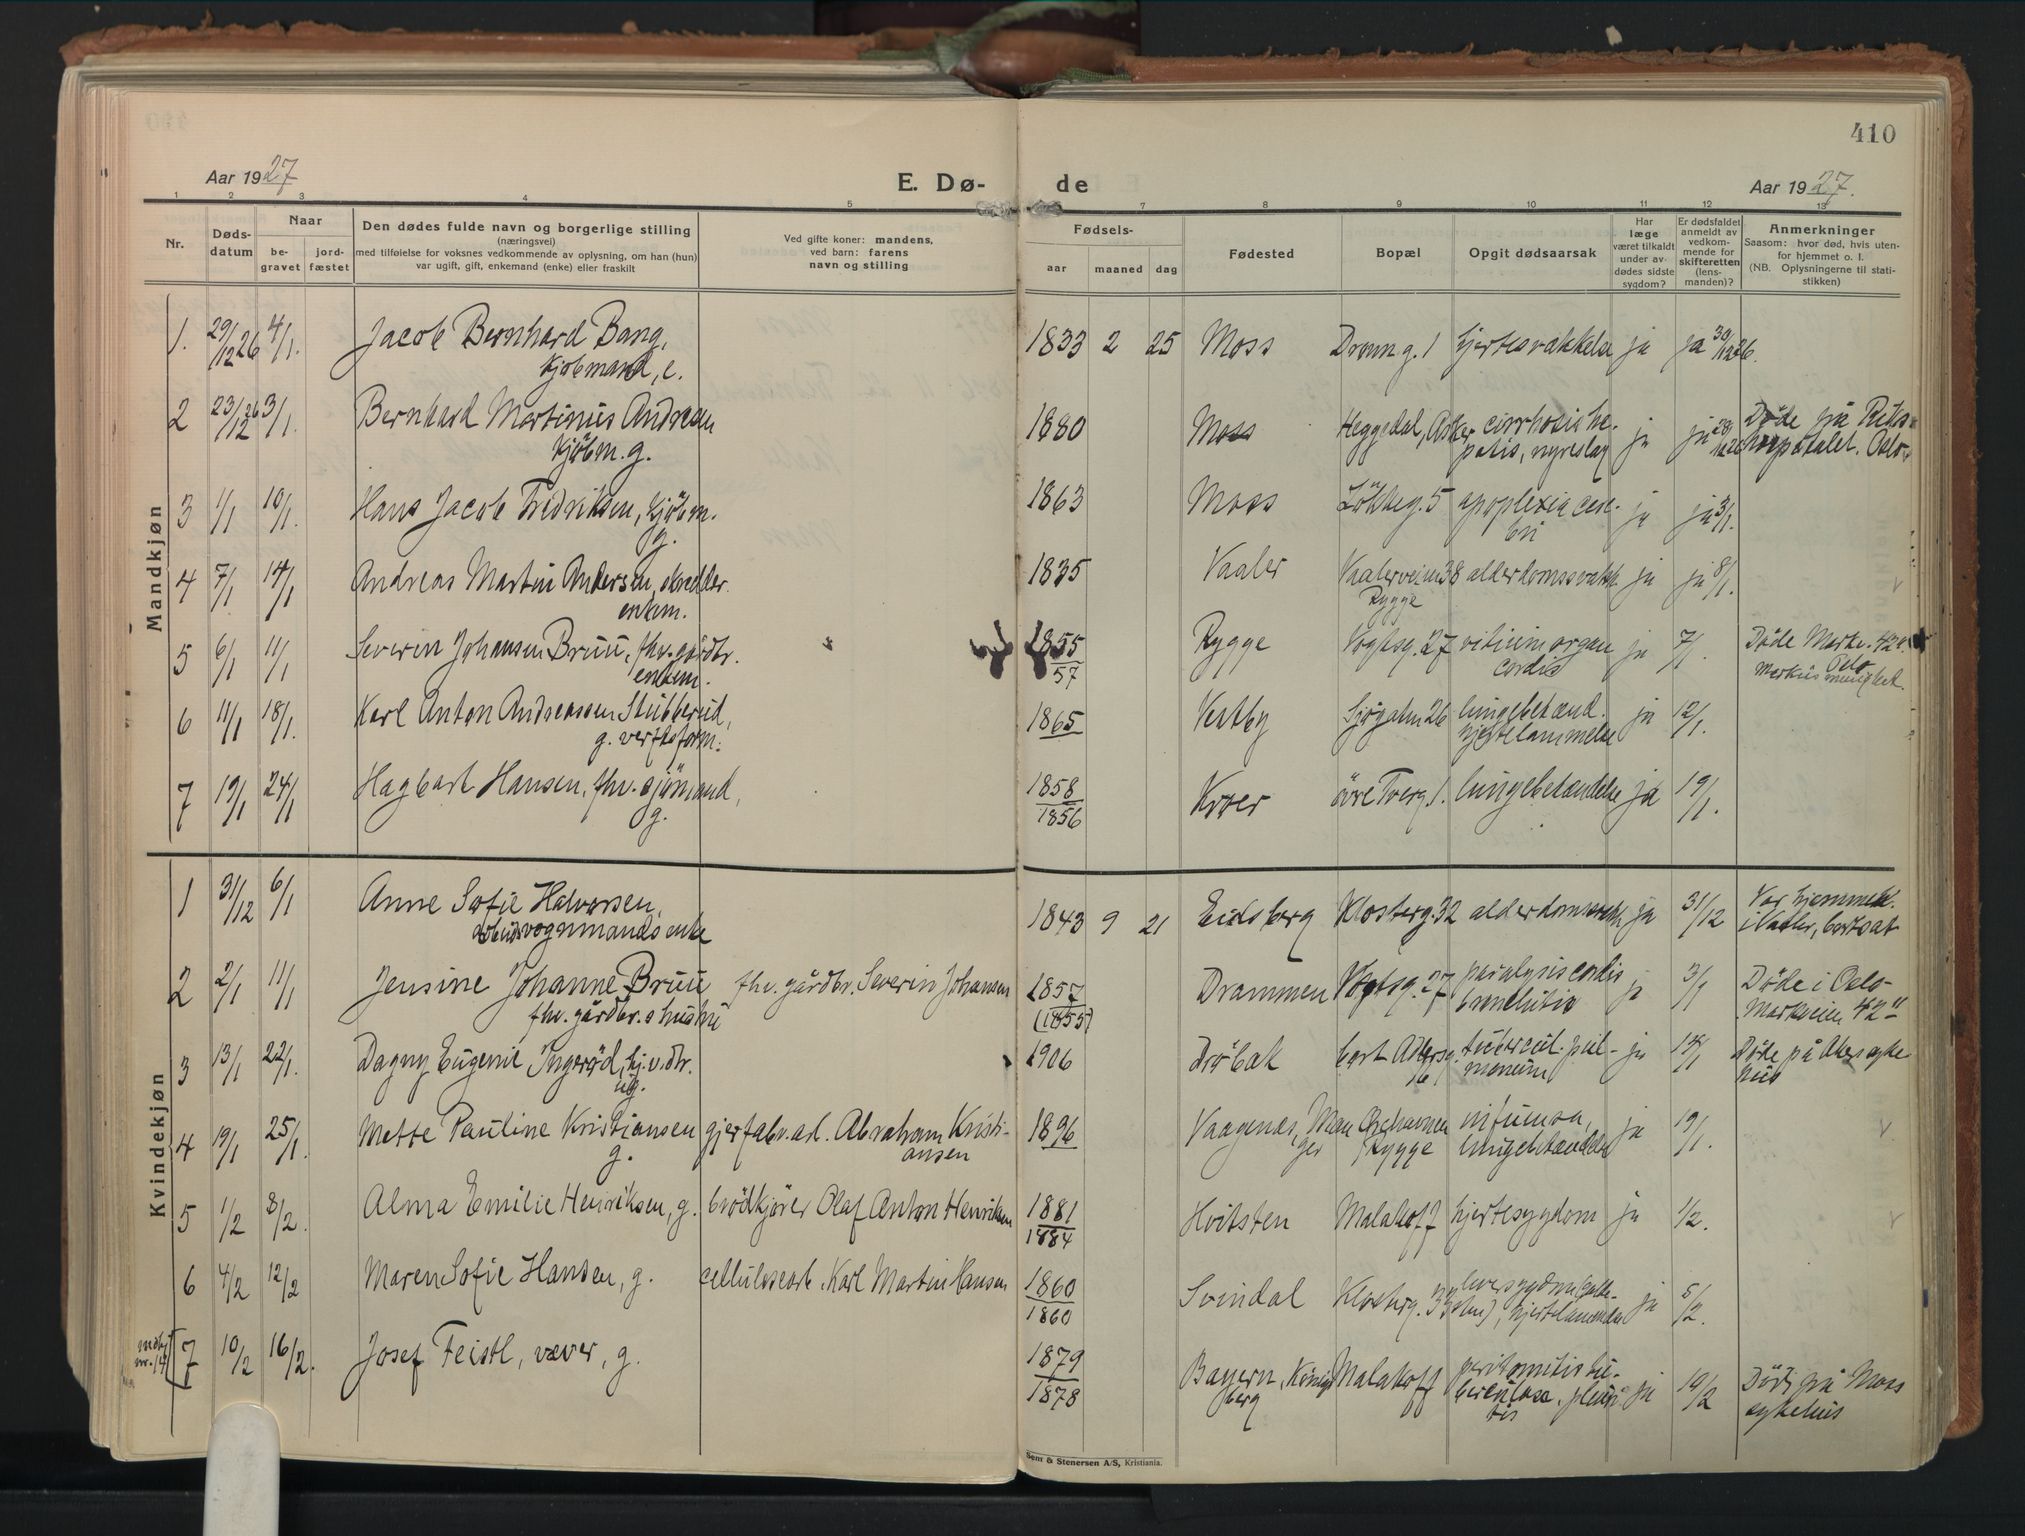 410
Aar 1927
E. Dø-
de
Aar 1927.
1 2 3 4 5 7 8 9 10 11 12 13
Nr.
Døds-
datum
Naar
be-
gravet
jord-
fæstet
Den dødes fulde navn og borgerlige stilling
(næringsvei)
med tilføielse for voksnes vedkommende av oplysning, om han (hun)
var ugift, gift, enkemand (enke) eller fraskilt
Ved gifte koner: mandens,
ved barn: farens
navn og stilling
Fødsels-
aar maaned dag
Fødested
Bopæl
Opgit dødsaarsak
Har
læge
været tilkaldt
under av-
dødes sidste
sygdom?
Er dødsfaldet
anmeldt av
vedkom-
mende for
skifteretten
(lens-
manden)?
Anmerkninger
Saasom: hvor død, hvis uten-
for hjemmet o. l.
(NB. Oplysningerne til stati-
stikken)
Mandkjøn
1. 29/12 26 4/1. Jacob Bernhard Bang, 1833 2 25 Moss Dronn.g. 1 hjertesvakkelse ja ja 30/12 26.
kjøbmand, e.
2 23/12 26 3/1. Bernhard Martinus Andresen 1880 Moss Heggedal, Asker cirrhosis he- ja ja 28/12 26 Døde på Riks-
kjøbm. g. patis, nyreslag hospitalet. Oslo.
3 1/1 10/1. Hans Jacob Fredriksen, kjøbm. 1863 Moss Løkkeg. 5 apoplexia cere- ja ja 3/1.
g. bri
4 7/1 14/1 Andreas Martin Andersen, skredder. 1835 Vaaler Vaalerveien 38 alderdomssvakk. ja ja 8/1.
enkem. Rygge
5 6/1 11/1 Severin Johansen Bruu, fhv. gårdbr. 1855 Rygge Vogtsg. 27 vitium organ ja 7/1. Døde Markv. 42
enkem. 57 cordis Oslo
Markus menighet.
6 11/1 18/1. Karl Anton Andreassen Stubberud, 1865 Vestby Sjøgaten 26 lungebetænd. ja 12/1.
g. verftsform. hjertelammelse
7 19/1 24/1 Hagbart Hansen, fhv. sjømand, 1858 Kroer øvre Tverg. 1. lungebetændelse ja 19/1.
g. 1856
Kvindekjøn
1 31/12 6/1 Anne Sofie Halvorsen, 1843 9 21 Eidsberg Klosterg. 32 alderdomssvakk. ja 31/12 Var hjemmeh.
vognmands enke i Vaaler, bortsat
2 2/1 11/1 Jensine Johanne Bruu fhv. gårdbr. Severin Johansen 1857 Drammen Vogtsg. 27 paralysis cordis ja 3/1 Døde i Oslo
fhv. gårdbr.s hustru (1855) bronchitis Markveien 42 II
3 13/1 22/1. Dagny Eugenie Ingerød, hj.v. dtr. 1906 Drøbak Cort Adlersg. tubercul. pul- ja Døde på Aker syke
ug. 16 monum hus
4 19/1 25/1. Mette Pauline Kristiansen gjerfabr.arb. Abraham Kristi- 1896 Vaagenæs, Man- Orehavnen influensa, ja 19/1.
g. ansen ger Rygge lungebetændelse
5 1/2 8/2. Alma Emilie Henriksen, g. brødkjører Olaf Anton Henriksen 1881 Hvitsten Malakoff hjertesygdom ja 1/2.
1884
6 4/2 12/2 Maren Sofie Hansen, g. cellulosearb. Karl Martin Hansen 1860 Svindal Klosterg. leversygdom (galde- ja 5/2.
1860 sten), hjertelammelse
7 10/2 16/2. Josef Feistl, væver, g. 1879 Bayern, Königs- Malakoff peritonitis tu- ja 14/2 Død på Moss
1878 berg berculosa, pleuri- sykehus
tis
Sem & Stenersen A/S, Kristiania.